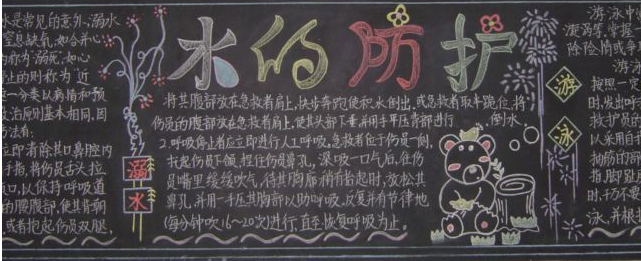 水是常见的意外,溺水
窒息缺氧,如合并心
为称为溺死,如心
止的则称为近
一分类以病情和预
救治原则基本相同,因
方法有:
立即清除其口鼻腔内
手指,将伤员舌头拉
口,以保持呼吸道
的腰腹部,使其背朝
或者抱起伤员双腿,
溺水
水的防护
将其腹部放在急救者肩上,快步奔跑使积水倒出,或急救者取半跪位,将
伤员的腹部放在急救者肩上,使其头部下垂,并用手平压背部进行倒水
2.呼吸停止者应立即进行人工呼吸,急救者位于伤员一侧,
托起伤员下颌,捏住伤员鼻孔,深吸一口气后,往伤
员嘴里缓缓吹气,待其胸廓稍有抬起时,放松其
鼻孔,并用一手压其胸部以助呼吸,反复并有节律地
(每分钟吹16~20次)进行,直至恢复呼吸为止。
游泳
游泳中
漩涡等,掌握
除险情或争
游泳
按照一定
时,发出呼
救护员的
以采用自
抽筋的部
指,脚趾
时,千万不
泳,并根